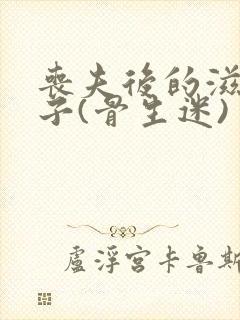 喪夫後的滋
子(骨生迷)
盧浮宮卡魯斯